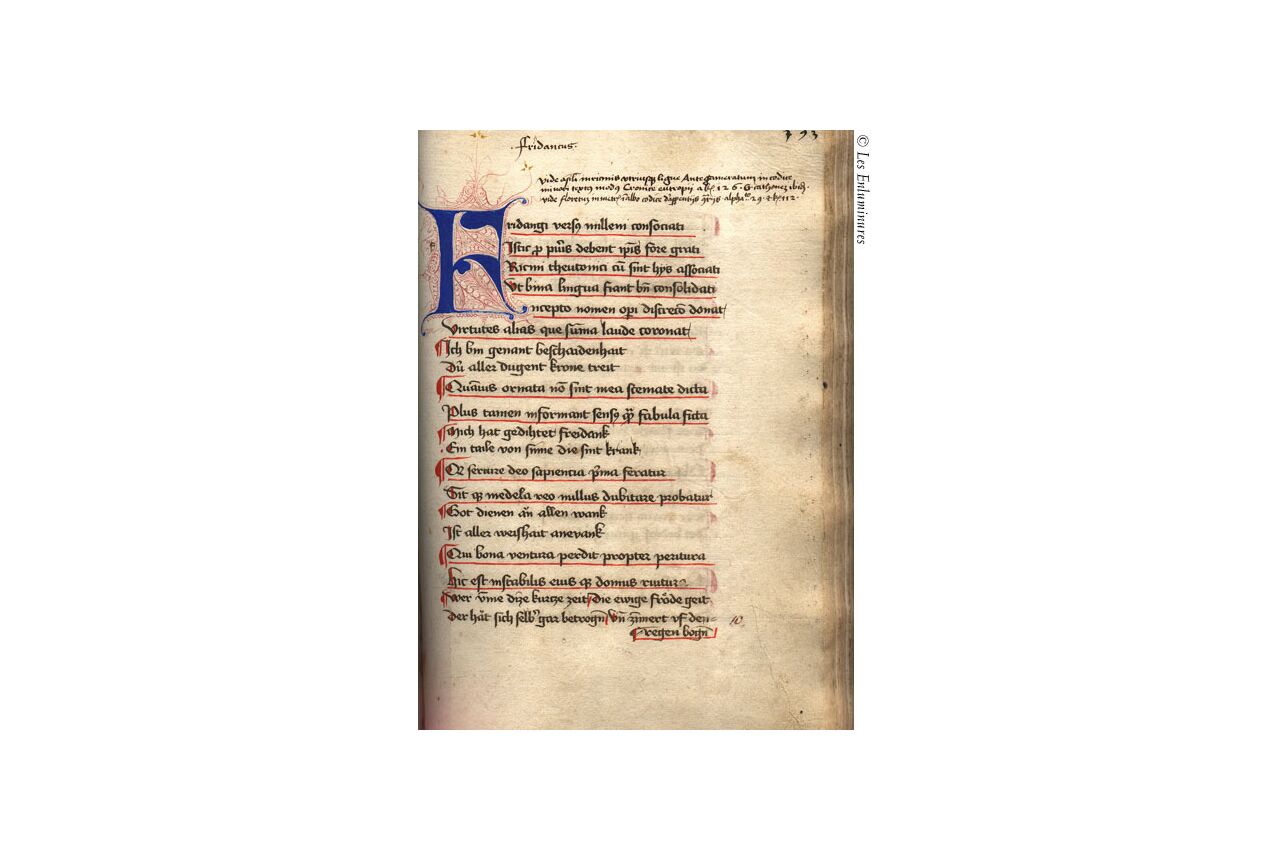 · Fridancus ·
193
vide
minori textus modus Cronice eutropii 126 · Et cathonez ibidem ·
vide floretum codice 29 · 112 ·
Fridangi versus millem consociati
Istic p debent ipis fore grati
Ricmi theutonici cu sint hys associati
Vt bina lingua fiant bn consolidati
Incepto nomen opi discreto donat
Virtutes alias que suma laude coronat
Ich bin genant beschaidenhait
Dú aller dugent krone treit
Quauis ornata no sint mea stemate dicta
Plus tamen informant sensus qm fabula ficta
Mich hat gedihtet freidank
Ein taile von sinne die sint krank
Qz seruire deo sapientia pma feratur
Sit qz medela reo nullus dubitare probatur
Got dienen an allen wank
Ist aller weishait anevank
Qui bona ventura perdit propter peritura
Hic est instabilis euis qz domus ruitura
Wer vme dize kurtze zeit / die ewige fröde geit
Der hät sich selb gar betrogn / vn zimert vf den=
regen bogn
10
© Les Enluminures